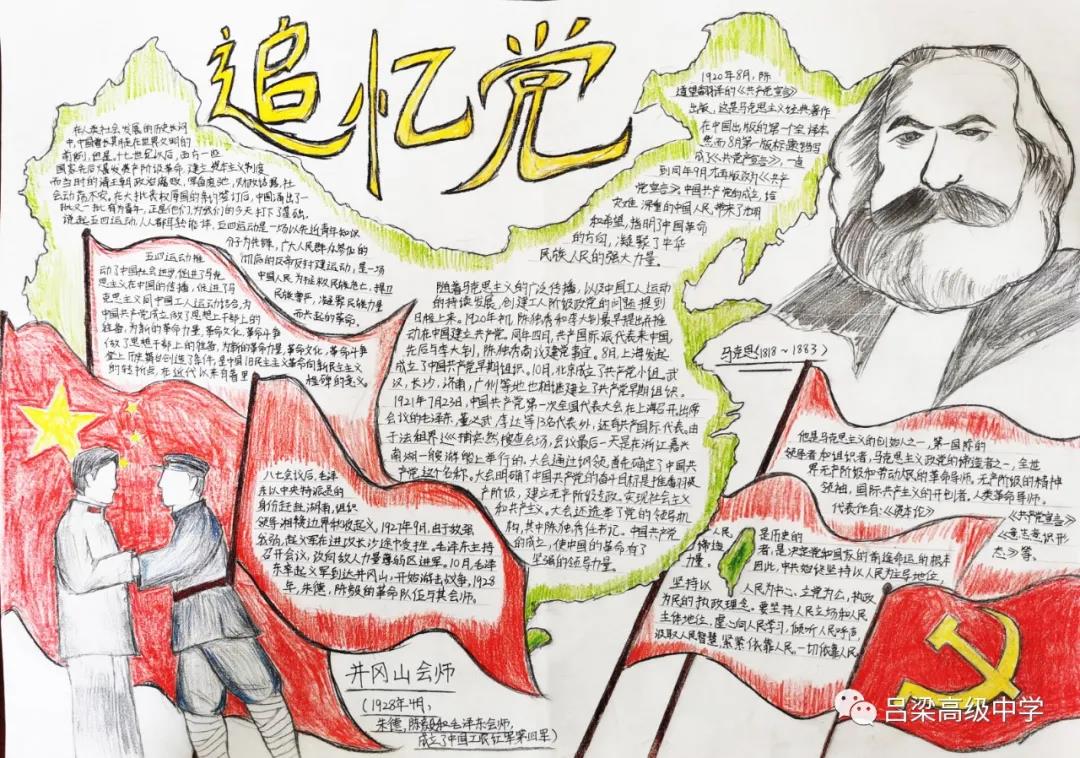 追忆党
在人类社会发展的历史长河
中,中国曾长期走在世界文明的
前列,但是,十七世纪以后,西方一些
国家先后爆发资产阶级革命,建立资本主义制度
而当时的清王朝政治腐败,军备废弛,财政拮据,社
会动荡不安。在大批丧权辱国的条约签订后,中国涌出了一
批又一批有为青年,正是他们,为我们的今天打下了基础。
说起五四运动,人人都耳熟能详,五四运动是一场以先进青年知识
分子为先锋,广大人民群众参加的
彻底的反帝反封建运动,是一场
中国人民为拯救民族危亡,捍卫
民族尊严,凝聚民族力量
而兴起的革命。
五四运动推
动了中国社会进步,促进了马克
思主义在中国的传播,促进了马
克思主义同中国工人运动结合,为
中国共产党成立做了思想上干部上的
准备,为新的革命力量,革命文化,革命斗争
做了思想干部上的准备,为新的革命力量,革命文化,革命斗争
登上历史舞台创造了条件,是中国旧民主主义革命向新民主主义
的转折点,在近代以来
1920年8月,陈
道望翻译的《共产党宣言》
出版,这是马克思主义经典著作
在中国出版的第一个全译本
然而8月第一版标题错写
成了《共党产宣言》,直
到同年9月,才再版改为《共产
党宣言》,中国共产党的成立,给
灾难深重的中国人民带来了光明
和希望,指明了中国革命
的方向,凝聚了中华
民族人民的强大力量。
随着马克思主义的广泛传播,以及中国工人运动
的持续发展,创建工人阶级政党的问题提到
日程上来。1920年初,陈独秀和李大钊最早提出在推
动在中国建立共产党。同年四月,共产国际派代表来中国,
先后与李大钊,陈独秀商议建党事宜。8月,上海发起
成立了中国共产党早期组织。10月,北京成立了共产党小组。武
汉,长沙,济南,广州等地也相继建立了共产党早期组织。
1921年7月23日,中国共产党第一次全国代表大会在上海召开出席
会议的毛泽东,董必武,李达等13名代表外,还有共产国际代表。由
于法租界巡捕突然搜查会场,会议最后一天是在浙江嘉兴
南湖一艘游船上举行的,大会通过纲领,首先确定了中国共
产党这个名称。大会明确了中国共产党的奋斗目标是推翻
产阶级,建立无产阶级专政,实现社会主义
和共产主义。大会还选举了党的领导机
构,其中陈独秀任书记。中国共产党
的成立,使中国的革命有了
坚强的领导力量。
马克思(1818~1883)
他是马克思主义的创始人之一,第一国际的
领导者和组织者,马克思主义政党的缔造者之一,全世
界无产阶级和劳动人民的革命导师,无产阶级的精神
领袖,国际共产主义的开创者,人类革命导师。
代表作有:《资本论》 《共产党宣言》
《德意志意识形
态》等。
八七会议后,毛泽
东以中央特派员的
身份赶赴湖南,组织
领导湘赣边界秋收起义,1927年9月,由于敌强
我弱,起义军在进攻长沙途中受挫。毛泽东主持
召开会议,改向敌人力量薄弱区进军。10月,毛泽
东率起义军到达井冈山,开始游击战争,1928
年,朱德,陈毅的革命队伍与其会师。
井冈山会师
(1928年4月,
朱德,陈毅和毛泽东会师,
成立了中国工农红军第四军)
人民 是历史的
缔造 者,是决定党和国家的前途命运的根本
力量。 因此,中共始终坚持以人民为主导地位,
坚持以 人民为中心,立党为公,执政
为民的执政理念。要坚持人民立场和人民
主体地位,虚心向人民学习,倾听人民呼声,
汲取人民智慧,紧紧依靠人民。一切依靠人民。
吕梁高级中学